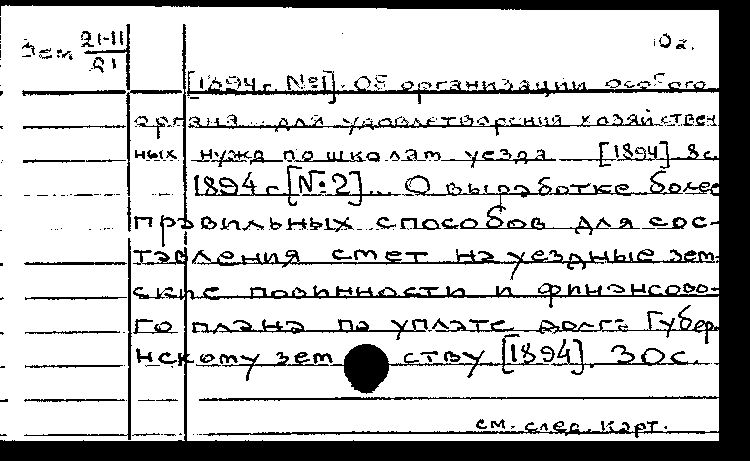 Зем 21-11/21 10 г.
[1894 г. №1]. Об организации особого
органа для удовлетворения хозяйствен
ных нужд по школам уезда [1894] 8 с.
1894 г [№2]... О выработке более
правильных способов для сос-
тавления смет на уездные зем-
ские повинности и финансово-
го плана по уплате долга Губер
нскому земству [1894]. 30с.
см. след. карт.